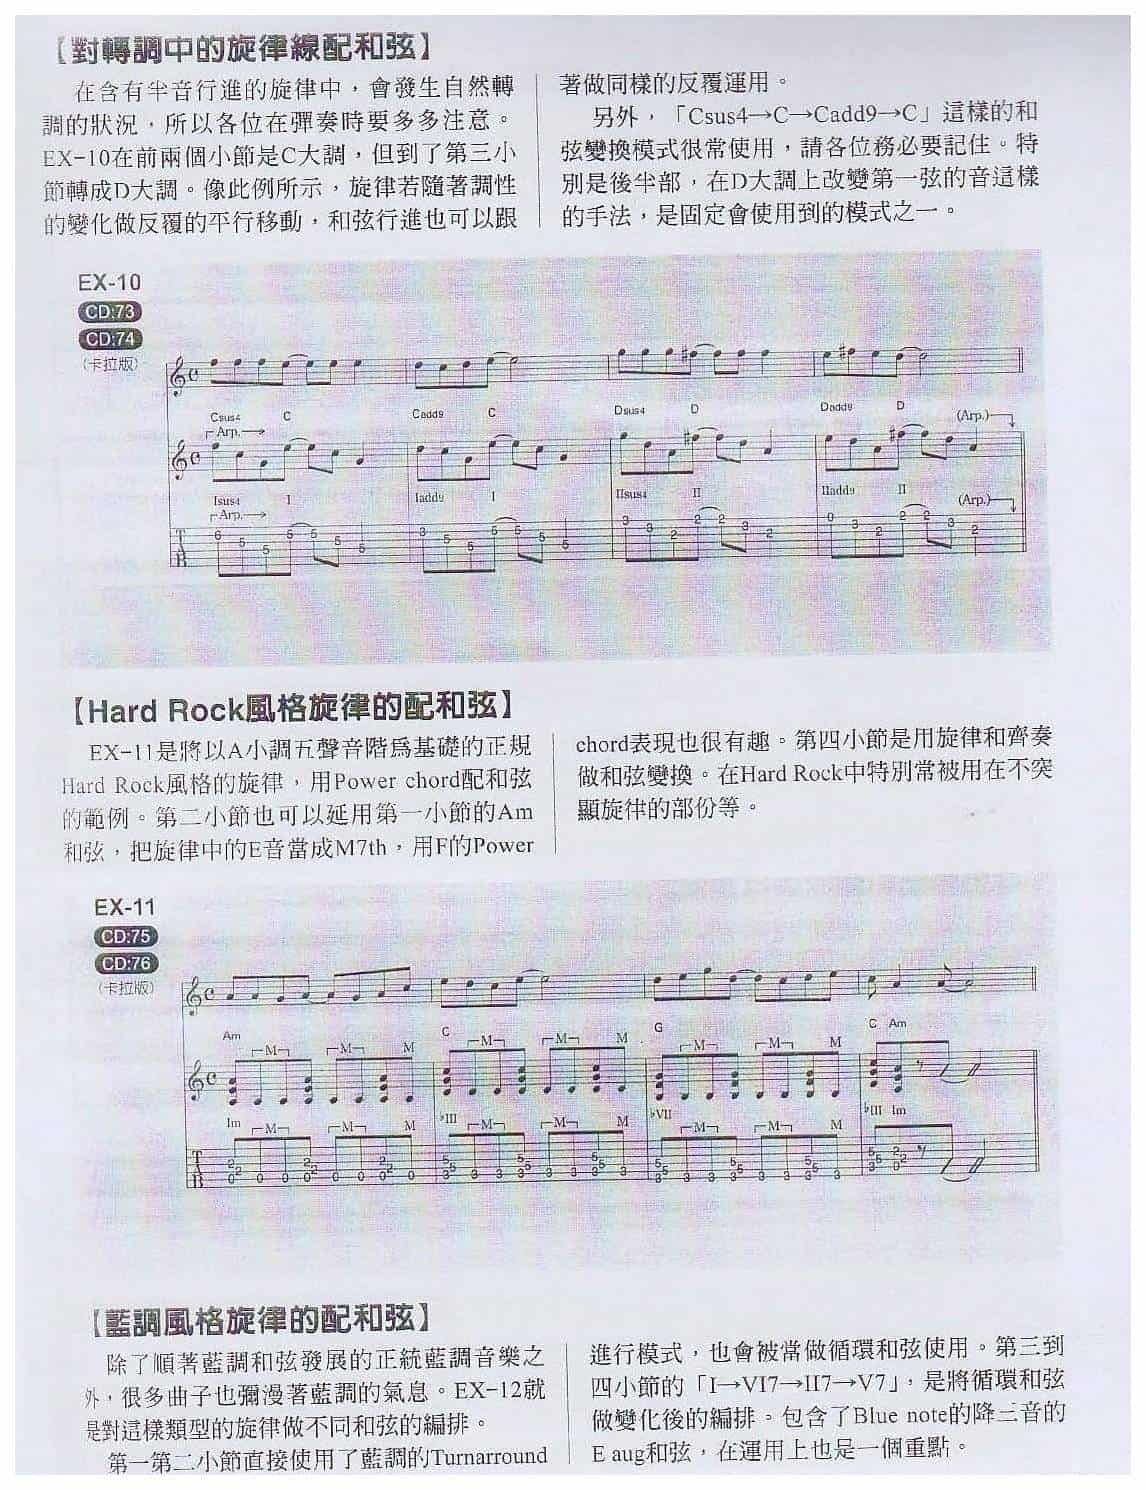 【對轉調中的旋律線配和弦】
在含有半音行進的旋律中，會發生自然轉
調的狀況，所以各位在彈奏時要多多注意。
EX-10在前兩個小節是C大調，但到了第三小
節轉成D大調。像此例所示，旋律若隨著調性
的變化做反覆的平行移動，和弦行進也可以跟
著做同樣的反覆運用。
另外，「Csus4→C→Cadd9→C」這樣的和
弦變換模式很常使用，請各位務必要記住。特
別是後半部，在D大調上改變第一弦的音這樣
的手法，是固定會使用到的模式之一。
EX-10
CD:73
CD:74
(卡拉版)
Csus4 C Cadd9 C Dsus4 D Dadd9 D (Arp.)
Arp.
Isus4 I Iadd9 I IIsus4 II IIadd9 II (Arp.)
Arp.
TAB
6 5 5 5 5 5 5 3 5 5 5 5 5 5 3 3 2 2 2 3 2 0 3 2 2 2 3 2
【Hard Rock風格旋律的配和弦】
EX-11是將以A小調五聲音階為基礎的正規
Hard Rock風格的旋律，用Power chord配和弦
的範例。第二小節也可以延用第一小節的Am
和弦，把旋律中的E音當成M7th，用F的Power
chord表現也很有趣。第四小節是用旋律和齊奏
做和弦變換。在Hard Rock中特別常被用在不突
顯旋律的部份等。
EX-11
CD:75
CD:76
(卡拉版)
Am C G C Am
M M M M M M M M M
Im ♭III ♭VII ♭III Im
M M M M M M M M M
TAB
【藍調風格旋律的配和弦】
除了順著藍調和弦發展的正統藍調音樂之
外，很多曲子也彌漫著藍調的氣息。EX-12就
是對這樣類型的旋律做不同和弦的編排。
第一第二小節直接使用了藍調的Turnarround
進行模式，也會被當做循環和弦使用。第三到
四小節的「I→VI7→II7→V7」，是將循環和弦
做變化後的編排。包含了Blue note的降三音的
E aug和弦，在運用上也是一個重點。